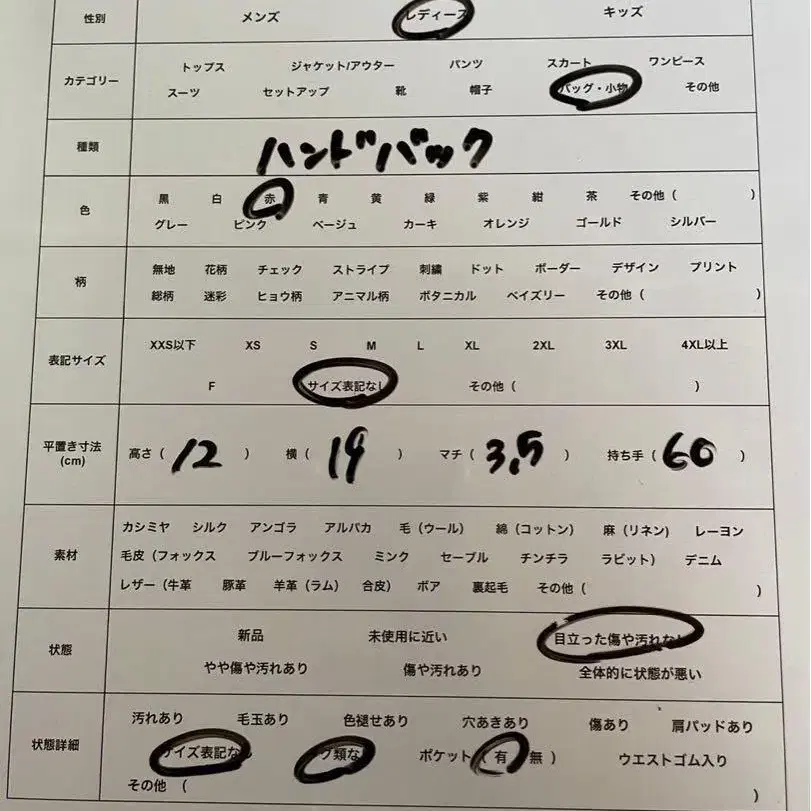 性別 メンズ レディース キッズ
カテゴリー トップス ジャケット/アウター パンツ スカート ワンピース
スーツ セットアップ 靴 帽子 バッグ・小物 その他
種類 ハンドバック
色 黒 白 赤 青 黄 緑 紫 紺 茶 その他（ ）
グレー ピンク ベージュ カーキ オレンジ ゴールド シルバー
柄 無地 花柄 チェック ストライプ 刺繍 ドット ボーダー デザイン プリント
総柄 迷彩 ヒョウ柄 アニマル柄 ボタニカル ペイズリー その他（ ）
表記サイズ XXS以下 XS S M L XL 2XL 3XL 4XL以上
F サイズ表記なし その他（ ）
平置き寸法 (cm) 高さ（ 12 ） 横（ 19 ） マチ（ 3,5 ） 持ち手（ 60 ）
素材 カシミヤ シルク アンゴラ アルパカ 毛（ウール） 綿（コットン） 麻（リネン） レーヨン
毛皮（フォックス ブルーフォックス ミンク セーブル チンチラ ラビット） デニム
レザー（牛革 豚革 羊革（ラム） 合皮） ボア 裏起毛 その他（ ）
状態 新品 未使用に近い 目立った傷や汚れなし
やや傷や汚れあり 傷や汚れあり 全体的に状態が悪い
状態詳細 汚れあり 毛玉あり 色褪せあり 穴あきあり 傷あり 肩パッドあり
サイズ表記なし タグ類なし ポケット（ 有 無 ） ウエストゴム入り
その他 （ ）